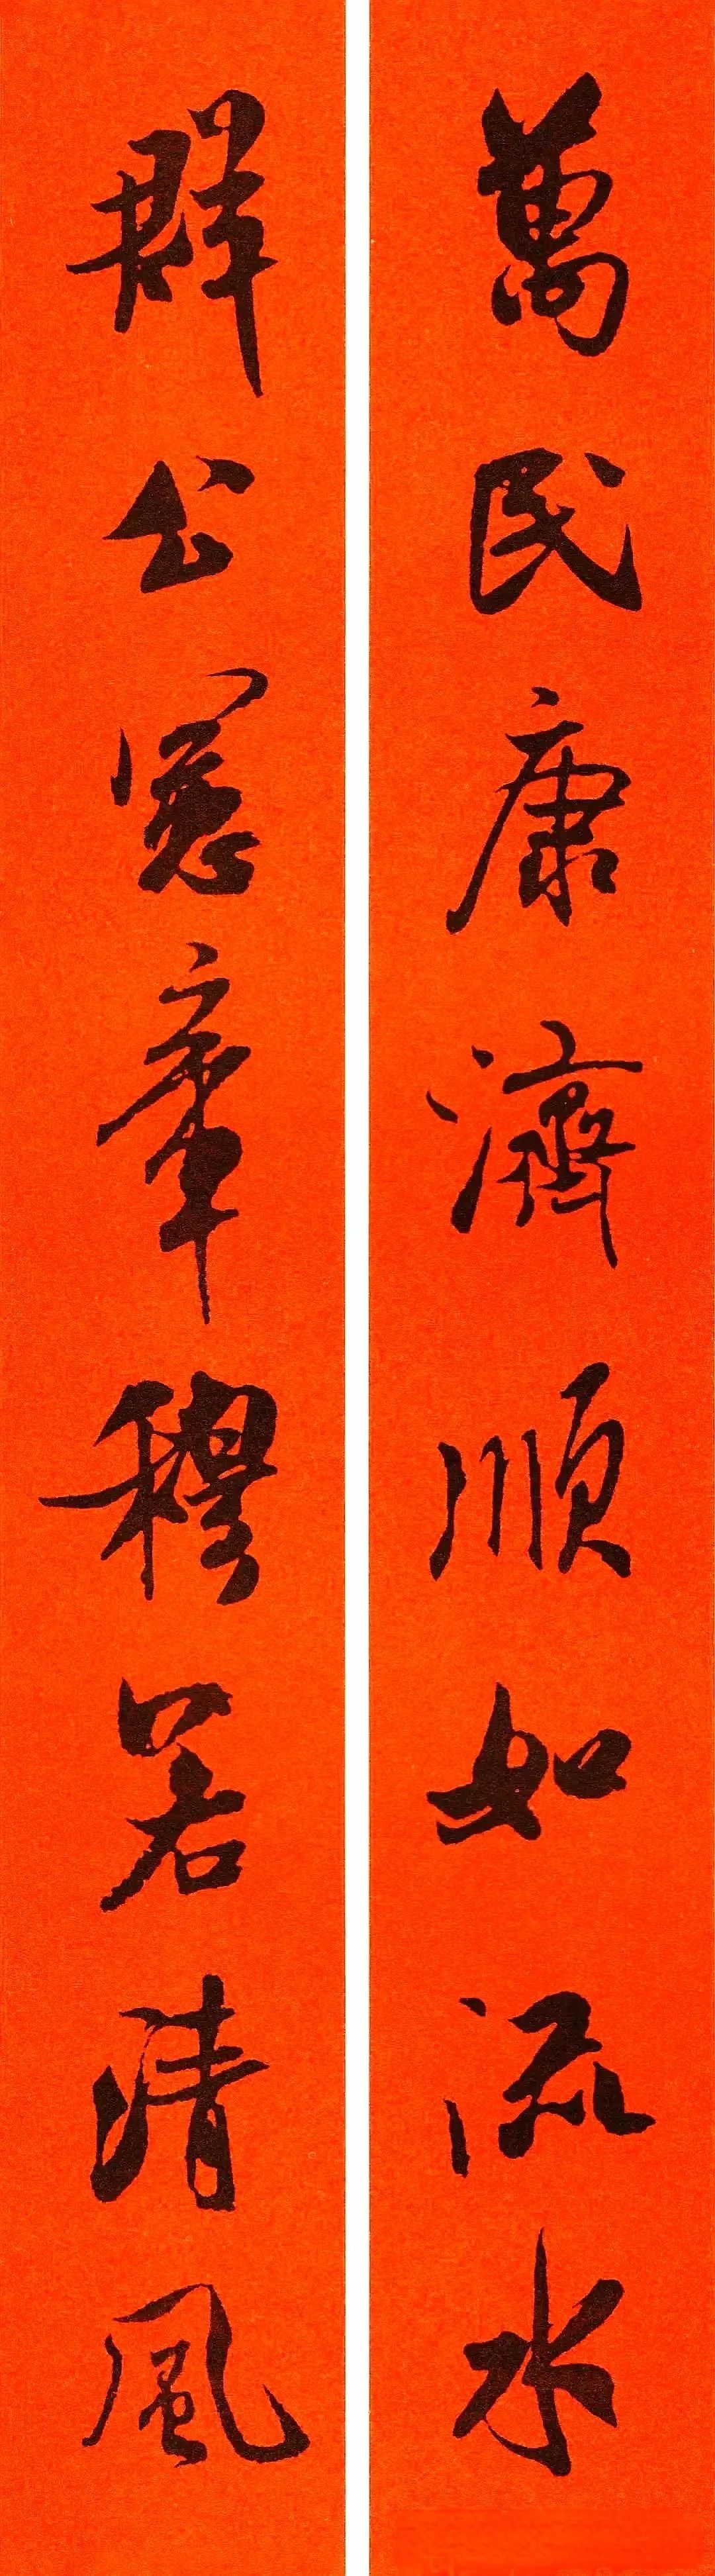 萬民康濟順如流水
羣公憲章穆若清風